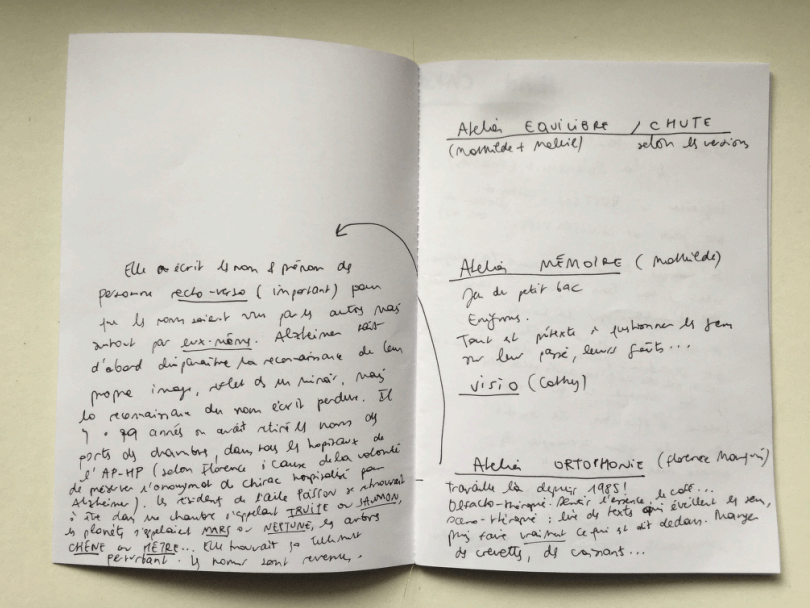 Elle a écrit les nom & prénom des
personne recto-verso (important) pour
que les noms soient vus par les autres mais
surtout par eux-même. Alzheimer fait
d'abord disparaître la reconnaissance de leur
propre image, reflet ds un miroir, mais
la reconnaissance du nom écrit perdure. Il
y a années on avait retiré les noms des
ports des chambres, dans tous les hopitaux de
l'AP-HP (selon Florence à cause de la volonté
de préserver l'anonymat de Chirac hospitalisé pour
Alzheimer). Les résident de l'aile Poisson se retrouvait
à être dans une chambre s'appelant TRUITE ou SAUMON,
les planèts s'appelaient MARS ou NEPTUNE, les arbres
CHÊNE ou HÊTRE... Elle trouvait ça tellement
perturbant. Les noms sont revenus.
Atelier EQUILIBRE / CHUTE
(Mathilde + ) selon les versions
Atelier MÉMOIRE (Mathilde)
Jeu du petit bac
Enigmes.
Tout est prétexte à questionner les gens
sur leur passé, leurs goûts...
VISIO (Cathy)
Atelier ORTOPHONIE (Florence )
Travaille là depuis 1985!
Olfacto-thérapie. Sentir l'essence, le café...
-thérapie : lire des texts qui éveillent les sens,
puis faire vraiment ce qui est dit dedans. Manger
des crevettes, du croissant...